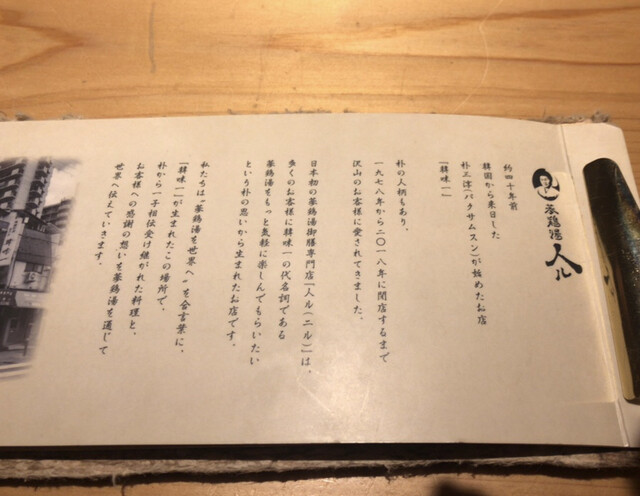 参鶏湯 人ル
約四十年前
韓国から来日した
朴三淳(パクサムスン)が始めたお店
「韓味一」
朴の人柄もあり、
一九七八年から二〇一八年に閉店するまで
沢山のお客様に愛されてきました。
日本初の薬鶏湯御膳専門店「人ル(ニル)」は、
多くのお客様に韓味一の代名詞である
薬鶏湯をもっと気軽に楽しんでもらいたい
という朴の思いから生まれたお店です。
私たちは“薬鶏湯を世界へ”を合言葉に、
「韓味一」が生まれたこの場所で、
朴から一子相伝受け継がれた料理と、
お客様への感謝の想いを薬鶏湯を通じて
世界へ伝えていきます。